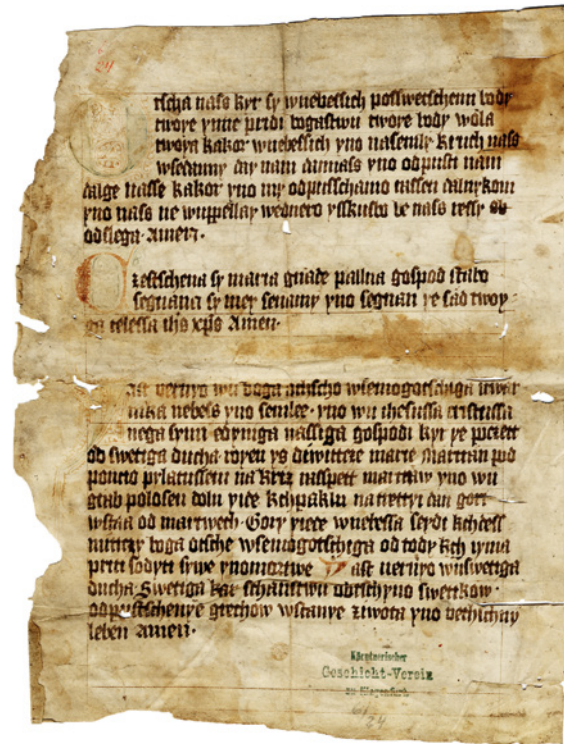 24
tscha nass kyr sy wnebessich posswetschenu body
twoye ymme pridi bogastwu twore body wola
twoya kakor wnebessich yno nasemly kruch nass
wsedanny day nam dannass yno odpusti nam
dalge nasse kakor yno my odpusschamo nassen dalnykom
yno nass ne wuppellay wednero ysskusbo le nass ressy
odslega. Amen.
Czestschena sy maria gnade pallna gospod stabo
segnana sy mey senamy yno segnan ye sad twoy
ga telessa ihs xps Amen.
wu boga otischo wsemogotschiga
nika nebess yno semlee. yno wu Jhesussa cristussa
nega synu edyniga nassiga gospodi kyr ye
od swetiga ducha royen ys dewittere marie Martran pod
poncio pylatussem na kriz rasspett martaw yno wu
grab polosen dolu yide na trettyi dan gori
wstaa od martwech. Gory yidee wnebessa seydi
boga otsche wsemogotschiga od tody
priti soditi sywe yno mortwe ast ueruyo wuswetiga
ducha Swetiga kar schanstwu obtschyno swetikow.
odpustschenye grechow wstanye ziwota yno vethichny
leben Amen.
Kärntnerischer
Geschicht-Verein
zu Klagenfurt
24